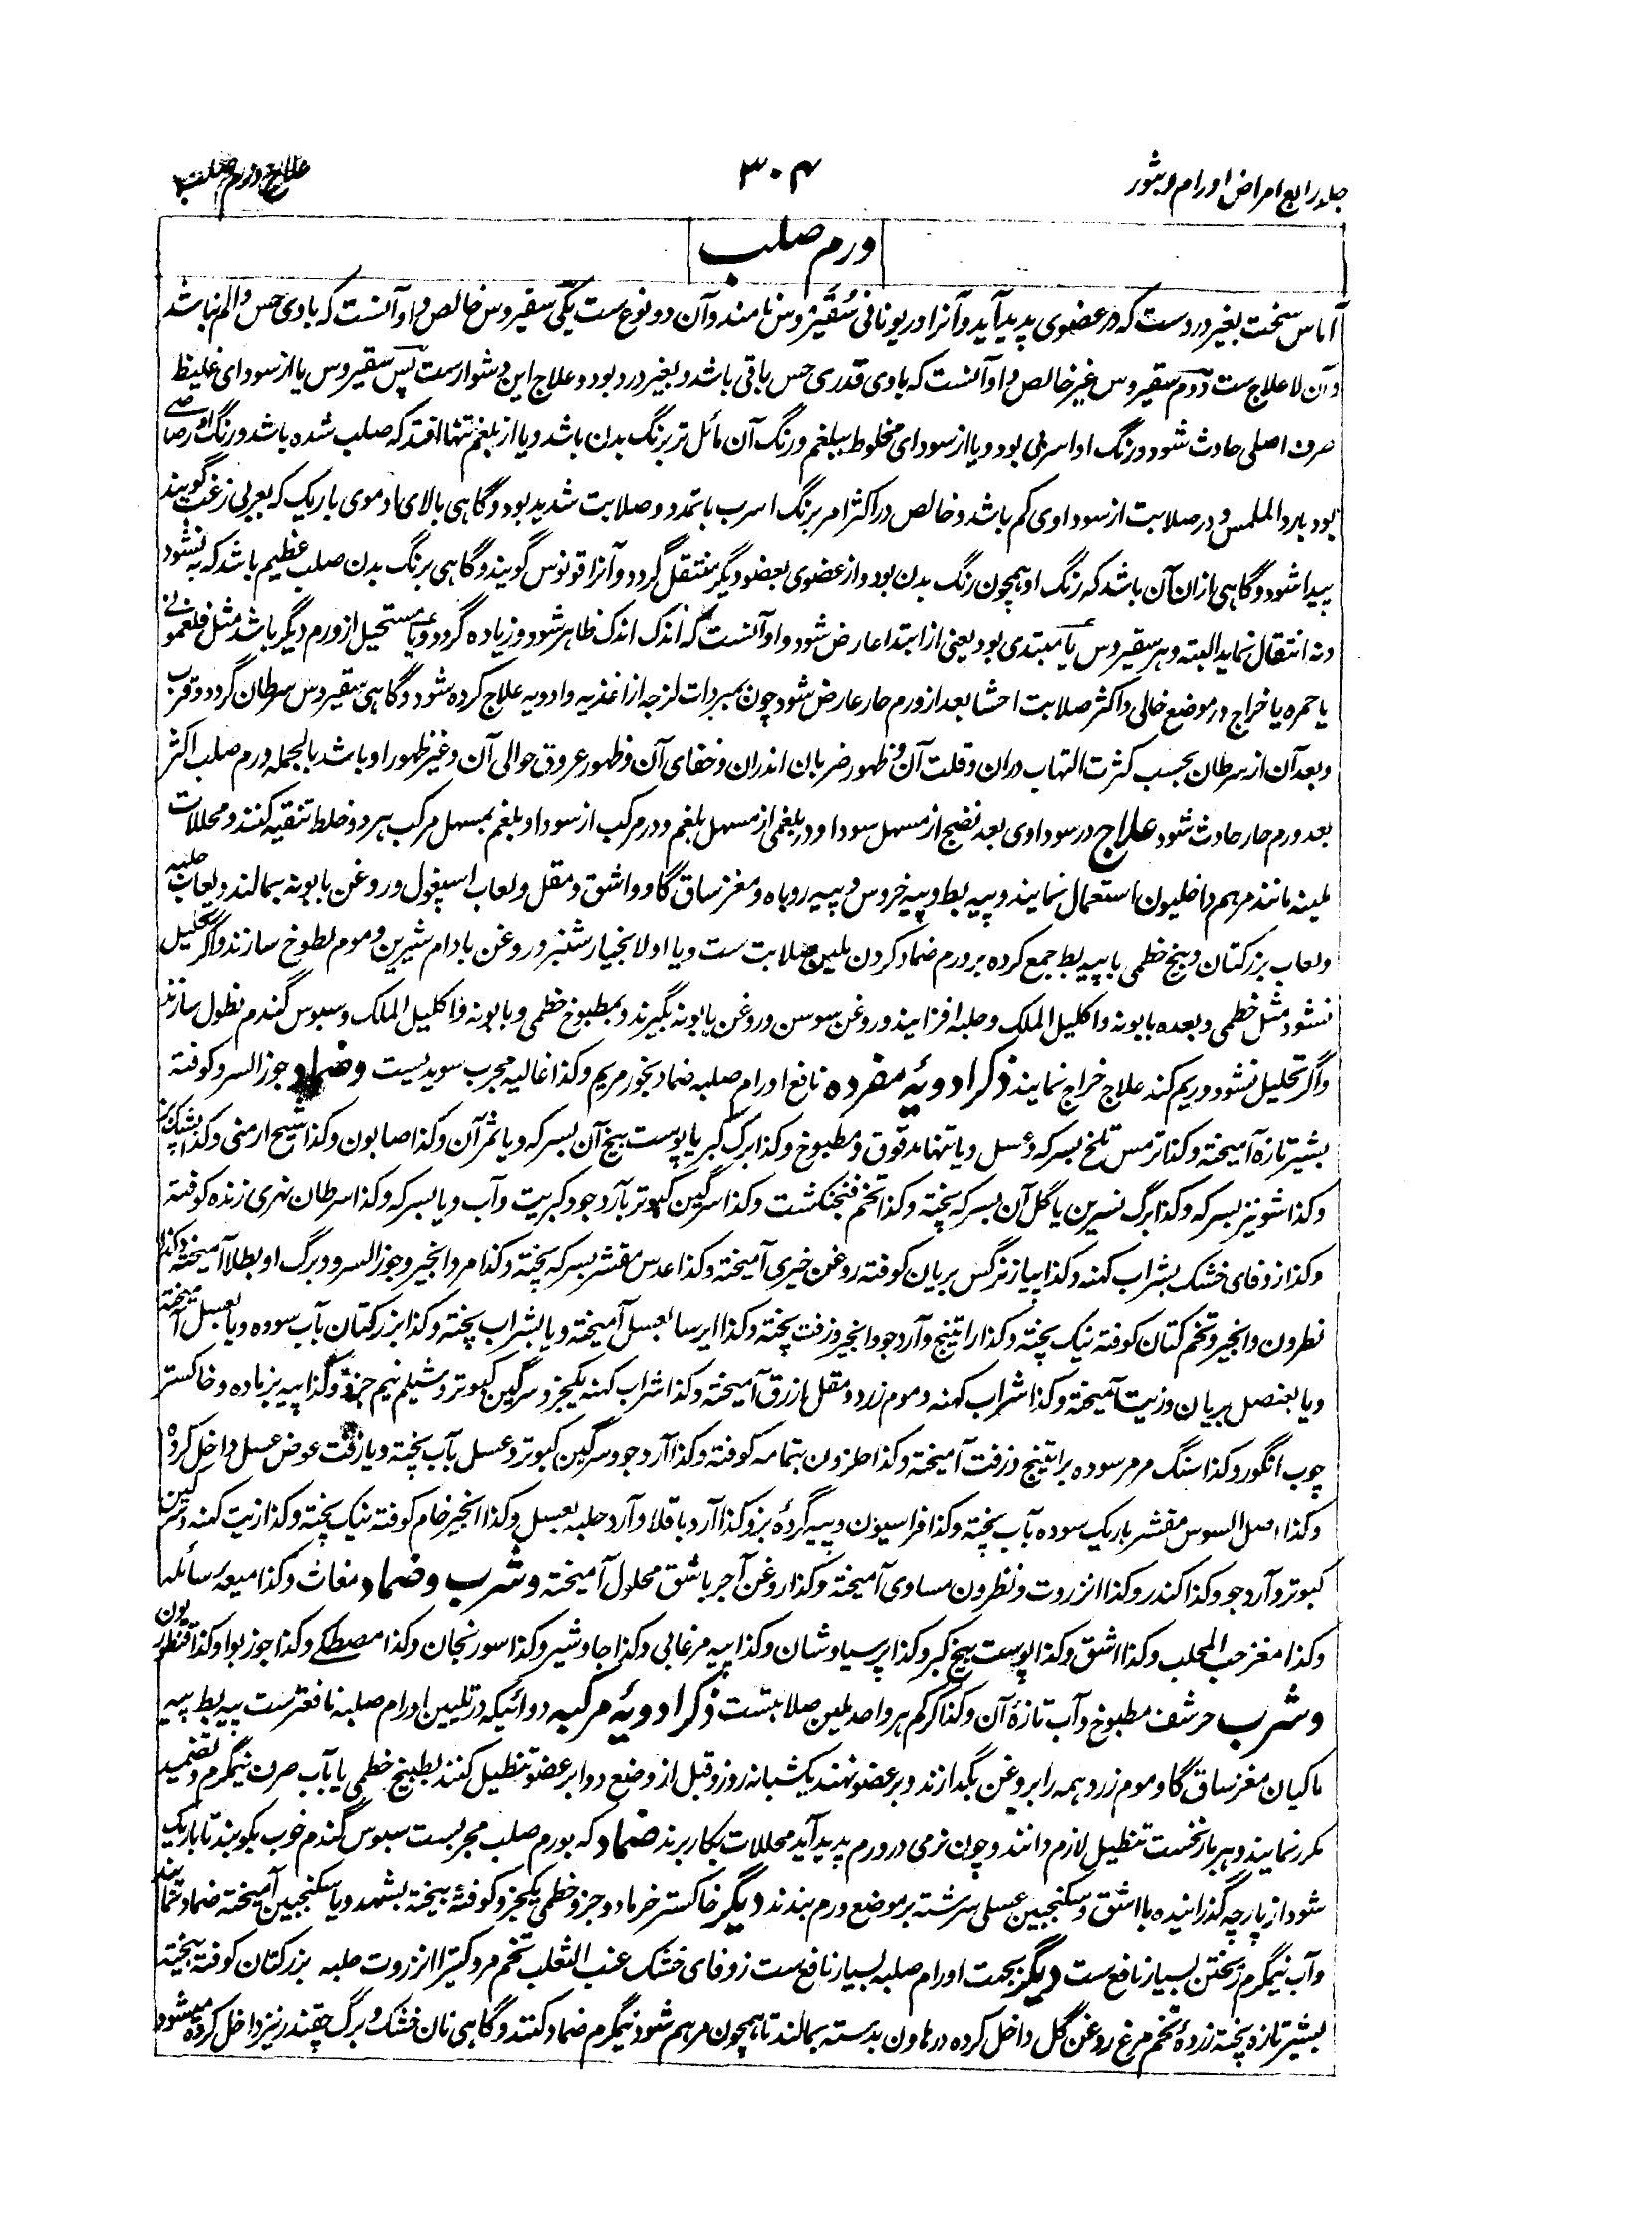 جلد رابع امراض اورام و بثور
۳۰۴
علاج ورم صلب
ورم صلب
آماس سخت بغیر دردست که در عضوی پدید آید و آنرا در یونانی سقیروس نامند و آن دو نوع ست یکی سقیروس خالص و او آنست که با وی حس و الم نباشد
و آن لا علاج ست دوم سقیروس غیر خالص و او آنست که با وی قدری حس باقی باشد و بغیر درد بود و علاج این دشوارست پس سقیروس یا از سودای غلیظ
صرف اصلی حادث شود و رنگ او اسربی بود و یا از سودای مخلوط ببلغم و رنگ آن مائل تر برنگ بدن باشد و یا از بلغم تنها افتد که صلب شده باشد و رنگ او رصاصی
بود بارد الملمس و در صلابت از سوداوی کم باشد و خالص در اکثر امر برنگ اسرب با تمدد و صلابت شدید بود و گاهی بالای او موی باریک که بعربی زغب گویند
پیدا شود و گاهی ازان آن باشد که رنگ او همچون رنگ بدن بود و از عضوی بعضو دیگر منتقل گردد و آنرا قونوس گویند و گاهی برنگ بدن صلب عظیم باشد که به نشود
و نه انتقال نماید البته و هر سقیروس یا مبتدی بود یعنی از ابتدا عارض شود و او آنست که اندک اندک ظاهر شود و زیاده گردد و یا مستحیل از ورم دیگر باشد مثل فلغمونی
یا حمره یا خراج در موضع خالی و اکثر صلابت احشا بعد از ورم حار عارض شود چون بمبردات لزجه از اغذیه و ادویه علاج کرده شود و گاهی سقیروس سرطان گردد و قرب
و بعد آن از سرطان بحسب کثرت التهاب دران و قلت آن و ظهور ضربان اندران و خفای آن و ظهور عروق حوالی آن و غیر ظهور او باشد بالجمله ورم صلب اکثر
بعد ورم حار حادث شود علاج در سوداوی بعد نضج از مسهل سودا و در بلغمی از مسهل بلغم و در مرکب از سودا و بلغم بمسهل مرکب بهر دو خلط تنقیه کنند و محللات
ملینه مانند مرهم داخلیون استعمال نمایند و پیه بط و پیه خروس و پیه روباه و مغز ساق گاو و اشق و مقل و لعاب اسپغول و روغن بابونه بمالند و لعاب حلبه
و لعاب بزرکتان و بیخ خطمی با پیه بط جمع کرده بر ورم ضماد کردن ملین صلابت ست و یا اولا بخیارشنبر و روغن بادام شیرین و موم لطوخ سازند و اگر تحلیل
نشود مثل خطمی و بعده بابونه و اکلیل الملک و حلبه افزایند و روغن سوسن و روغن بابونه بگیرند و بمطبوخ خطمی و بابونه و اکلیل الملک و سبوس گندم نطول سازند
و اگر تحلیل نشود و ریم کند علاج خراج نمایند ذکر ادویهٔ مفرده نافع اورام صلبه ضماد بخور مریم و کذا غالیه مجرب سویدیست و ضماد جوز السرو کوفته
بشیر تازه آمیخته و کذا ترمس تلخ بسرکه و عسل و یا تنها مدقوق و مطبوخ و کذا برگ کبر یا پوست بیخ آن بسرکه و یا ثمر آن و کذا صابون و کذا شیح ارمنی و کذا پشک بز
و کذا شونیز بسرکه و کذا برگ نسرین یا گل آن بسرکه پخته و کذا تخم فنجنکشت و کذا سرگین کبوتر بآرد جو و کبریت و آب و یا بسرکه و کذا سرطان نهری زنده کوفته
و کذا زوفای خشک بشراب کهنه و کذا پیاز نرگس بریان کوفته روغن خیری آمیخته و کذا عدس مقشر بسرکه پخته و کذا مر و انجیر و جوز السرو و برگ او بطلا آمیخته و کذا
نطرون و انجیر و تخم کتان کوفته نیک پخته و کذا راتینج و آرد جو و انجیر و زفت پخته و کذا ایرسا بعسل آمیخته و یا بشراب پخته و کذا بزرکتان بآب سوده و یا بعسل آمیخته
و یا بعنصل بریان و زیت آمیخته و کذا شراب کهنه و موم زرد و مقل ازرق آمیخته و کذا شراب کهنه یکجز و سرگین کبوتر و شیلم نیم جزو و کذا پیه بز ماده و خاکستر
چوب انگور و کذا سنگ مرمر سوده براتینج و زفت آمیخته و کذا حلزون بتمامه کوفته و کذا آرد جو و سرگین کبوتر و عسل بآب پخته و یا زفت عوض عسل داخل کرده
و کذا اصل السوس مقشر باریک سوده بآب پخته و کذا فراسیون و پیه گردهٔ بز و کذا آرد باقلا و آرد حلبه بعسل و کذا انجیر خام کوفته نیک پخته و کذا زیت کهنه و سرگین
کبوتر و آرد جو و کذا کندر و کذا انزروت و نطرون مساوی آمیخته و کذا روغن آجر باشق محلول آمیخته و شرب و ضماد مغاث و کذا میعه سائله
و کذا مغز حب المحلب و کذا اشق و کذا پوست بیخ کبر و کذا پرسیاوشان و کذا پیه مرغابی و کذا جاوشیر و کذا سورنجان و کذا مصطکے و کذا جوز بوا و کذا قنطوریون
و شرب حرشف مطبوخ و آب تازهٔ آن و کذا کرکم هر واحد ملین صلابتست ذکر ادویهٔ مرکبه دوائیکه در تلیین اورام صلبه نافعترست پیه بط پیه
ماکیان مغز ساق گاو موم زرد همه را بروغن بگدازند و بر عضو نهند یکشبانه روز و قبل از وضع دوا بر عضو تنطیل کنند بطبیخ خطمی یا بآب صرف نیمگرم و تضمید
مکرر نمایند و هر بار نخست تنطیل لازم دانند و چون نرمی در ورم پدید آید محللات بکار برند ضماد که بورم صلب مجربست سبوس گندم خوب بکوبند تا باریک
شود از پارچه گذرانیده با اشق و سکنجبین عسلی سرشته بر موضع ورم بندند دیگر خاکستر خرما دو جزو خطمی یکجزو کوفته بیخته بشهد و یا سکنجبین آمیخته ضماد نمایند
و آب نیمگرم ریختن بسیار نافع ست دیگر بجهت اورام صلبه بسیار نافع ست زوفای خشک عنب الثعلب تخم مرو کتیرا انزروت حلبه بزرکتان کوفته بیخته
بشیر تازه پخته زردهٔ تخم مرغ روغن گل داخل کرده در هاون بدسته بمالند تا همچون مرهم شود نیمگرم ضماد کنند و گاهی نان خشک و برگ چقندر نیز داخل کرده میشود